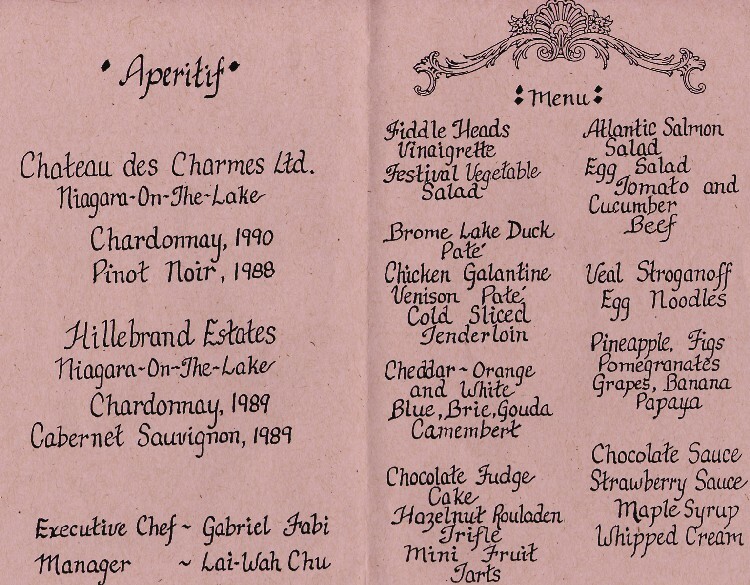 Aperitif
Chateau des Charmes Ltd.
Niagara-On-The-Lake
Chardonnay, 1990
Pinot Noir, 1988
Hillebrand Estates
Niagara-On-The-Lake
Chardonnay, 1989
Cabernet Sauvignon, 1989
Executive Chef ~ Gabriel Fabi
Manager ~ Lai-Wah Chu
Menu
Fiddle Heads
Vinaigrette
Festival Vegetable
Salad
Brome Lake Duck
Paté
Chicken Galantine
Venison Paté
Cold Sliced
Tenderloin
Cheddar ~ Orange
and White
Blue, Brie, Gouda
Camembert
Chocolate Fudge
Cake
Hazelnut Rouladen
Trifle
Mini Fruit
Tarts
Atlantic Salmon
Salad
Egg Salad
Tomato and
Cucumber
Beef
Veal Stroganoff
Egg Noodles
Pineapple, Figs
Pomegranates
Grapes, Banana
Papaya
Chocolate Sauce
Strawberry Sauce
Maple Syrup
Whipped Cream